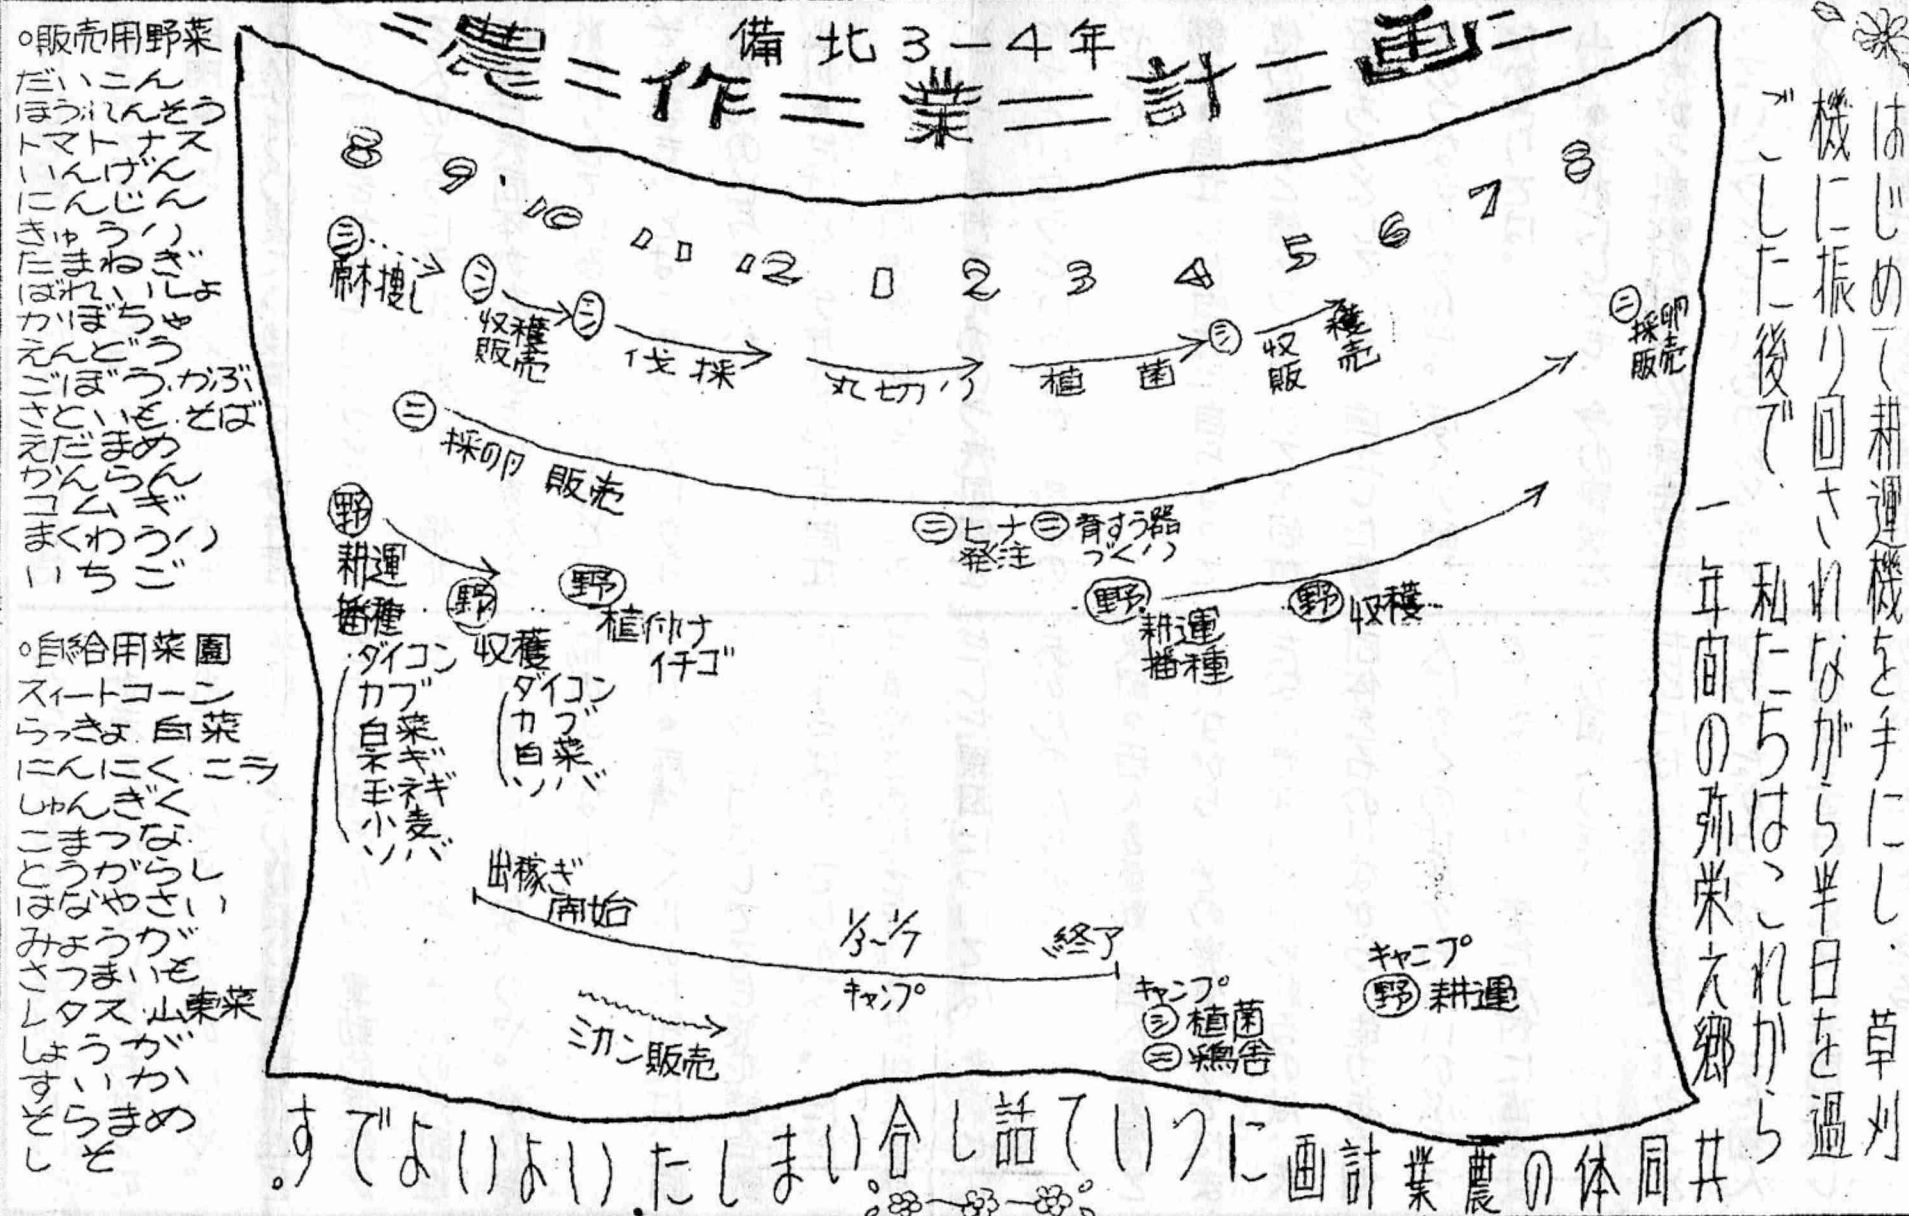 はじめて耕運機を手にし、草刈
機に振り回されながら半日を過
ごした後で、私たちはこれから
一年間の弥栄え郷共
同体の農業計画について話し合いました。いよいよです。
備北3-4年
=農=作=業=計=画=
8 9 10 11 12 1 2 3 4 5 6 7 8
㋛
原木捜し
㋛
収穫
販売
㋛
伐採
丸切り
植菌
㋛
収穫
販売
㊁
採卵
販売
㊁
採卵 販売
㊁ヒナ
発注
㊁育すう器
づくり
野
耕運
播種
ダイコン
カブ
白菜
ネギ
玉ネギ
小麦
ソバ
野
収穫
ダイコン
カブ
白菜
ソバ
野
植付け
イチゴ
野
耕運
播種
野 収穫
出稼ぎ
開始
1/3~1/7
キャンプ
終了
ミカン販売
キャンプ
㋛植菌
㊁鶏舎
キャンプ
野 耕運
○販売用野菜
だいこん
ほうれんそう
トマト ナス
いんげん
にんじん
きゅうり
たまねぎ
ばれいしょ
かぼちゃ
えんどう
ごぼう.かぶ
さといも.そば
えだまめ
かんらん
コムギ
まくわうり
いちご
○自給用菜園
スィートコーン
らっきょ 白菜
にんにく.ニラ
しゅんぎく
こまつな
とうがらし
はなやさい
みょうが
さつまいも
レタス.山東菜
しょうが
すいか
そらまめ
しそ